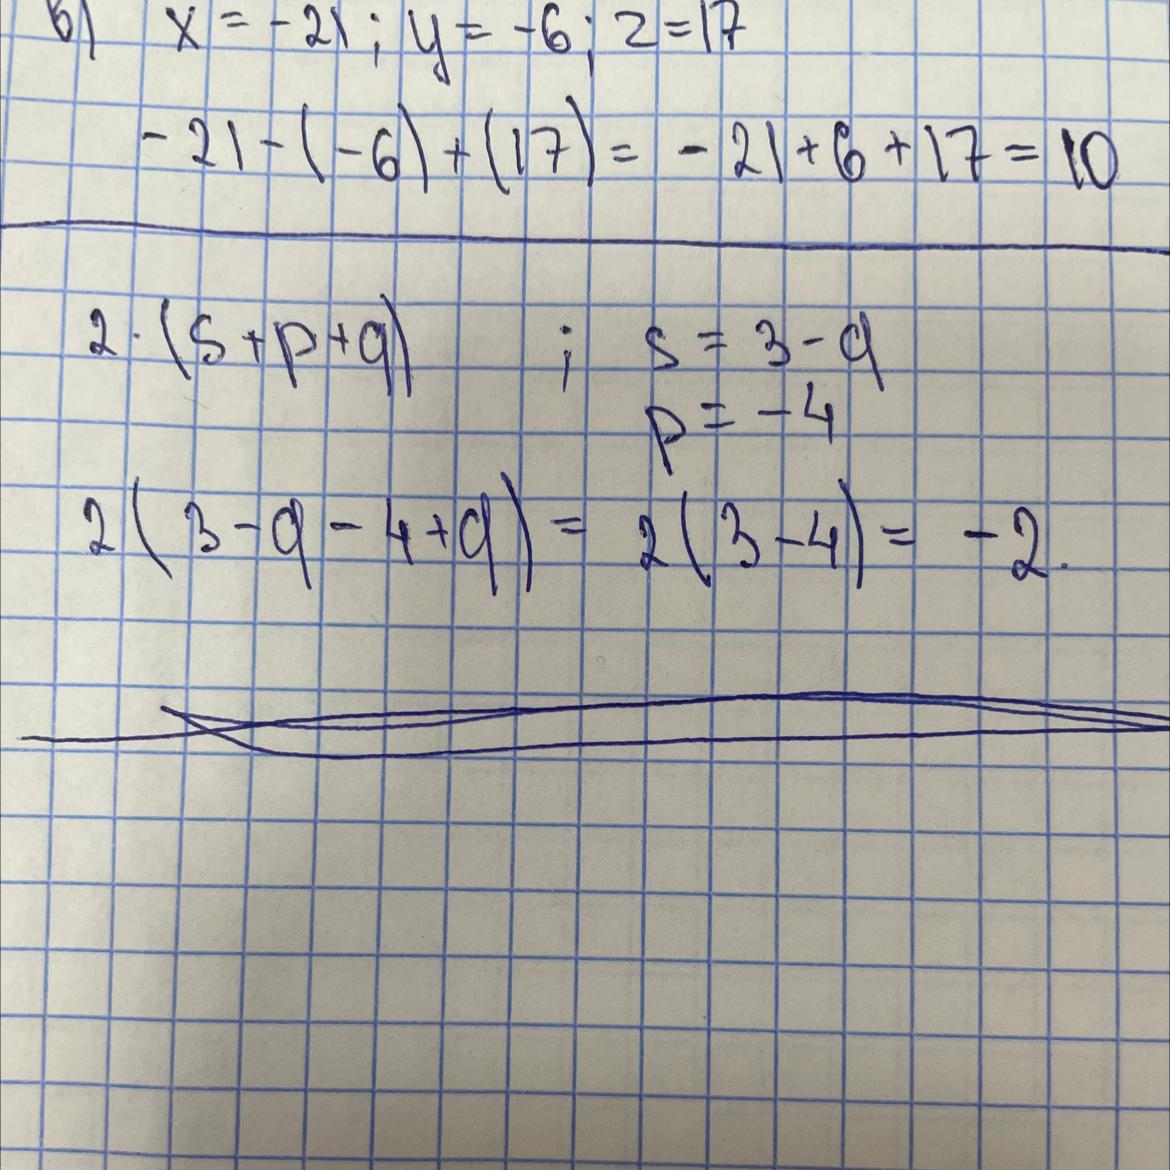 б) x = -21 ; y = -6 ; z = 17
-21 - (-6) + (17) = -21 + 6 + 17 = 10
2 · (s + p + q) ; s = 3 - q
p = -4
2 ( 3 - q - 4 + q ) = 2 ( 3 - 4 ) = -2.